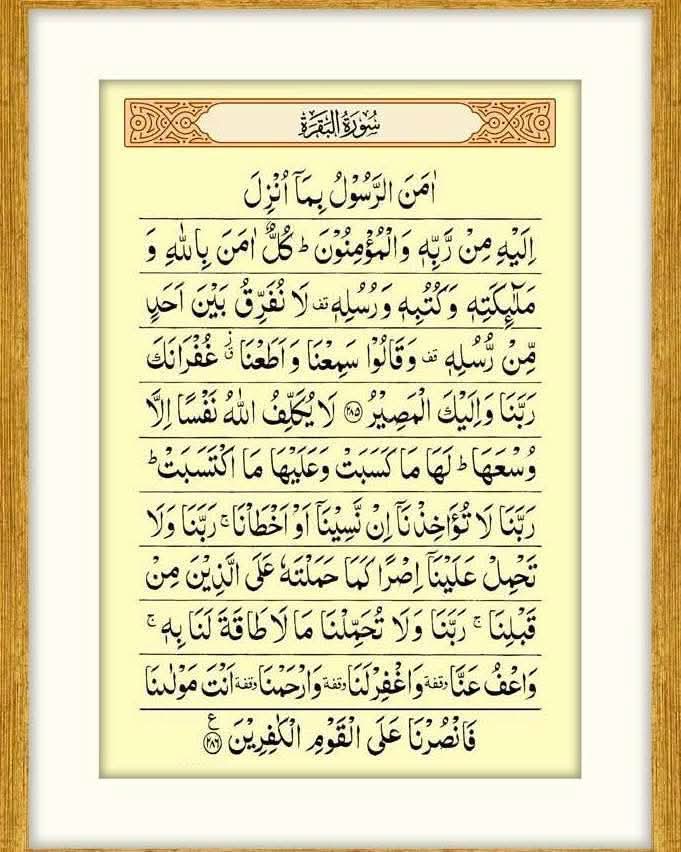 سُوْرَةُ الْبَقَرَةِ
اٰمَنَ الرَّسُوْلُ بِمَاۤ اُنْزِلَ
اِلَيْهِ مِنْ رَّبِّهٖ وَالْمُؤْمِنُوْنَ ؕ كُلٌّ اٰمَنَ بِاللّٰهِ وَ
مَلٰٓئِكَتِهٖ وَكُتُبِهٖ وَرُسُلِهٖ قف لَا نُفَرِّقُ بَيْنَ اَحَدٍ
مِّنْ رُّسُلِهٖ قف وَقَالُوْا سَمِعْنَا وَاَطَعْنَا ق ز غُفْرَانَكَ
رَبَّنَا وَاِلَيْكَ الْمَصِيْرُ ۝۲۸۵ لَا يُكَلِّفُ اللّٰهُ نَفْسًا اِلَّا
وُسْعَهَا ؕ لَهَا مَا كَسَبَتْ وَعَلَيْهَا مَا اكْتَسَبَتْ ؕ
رَبَّنَا لَا تُؤَاخِذْنَاۤ اِنْ نَّسِيْنَاۤ اَوْ اَخْطَاْنَا ۚ رَبَّنَا وَلَا
تَحْمِلْ عَلَيْنَاۤ اِصْرًا كَمَا حَمَلْتَهٗ عَلَى الَّذِيْنَ مِنْ
قَبْلِنَا ۚ رَبَّنَا وَلَا تُحَمِّلْنَا مَا لَا طَاقَةَ لَنَا بِهٖ ۚ
وَاعْفُ عَنَّا وقفة وَاغْفِرْ لَنَا وقفة وَارْحَمْنَا وقفة اَنْتَ مَوْلٰىنَا
فَانْصُرْنَا عَلَى الْقَوْمِ الْكٰفِرِيْنَ ۝۲۸۶ ع